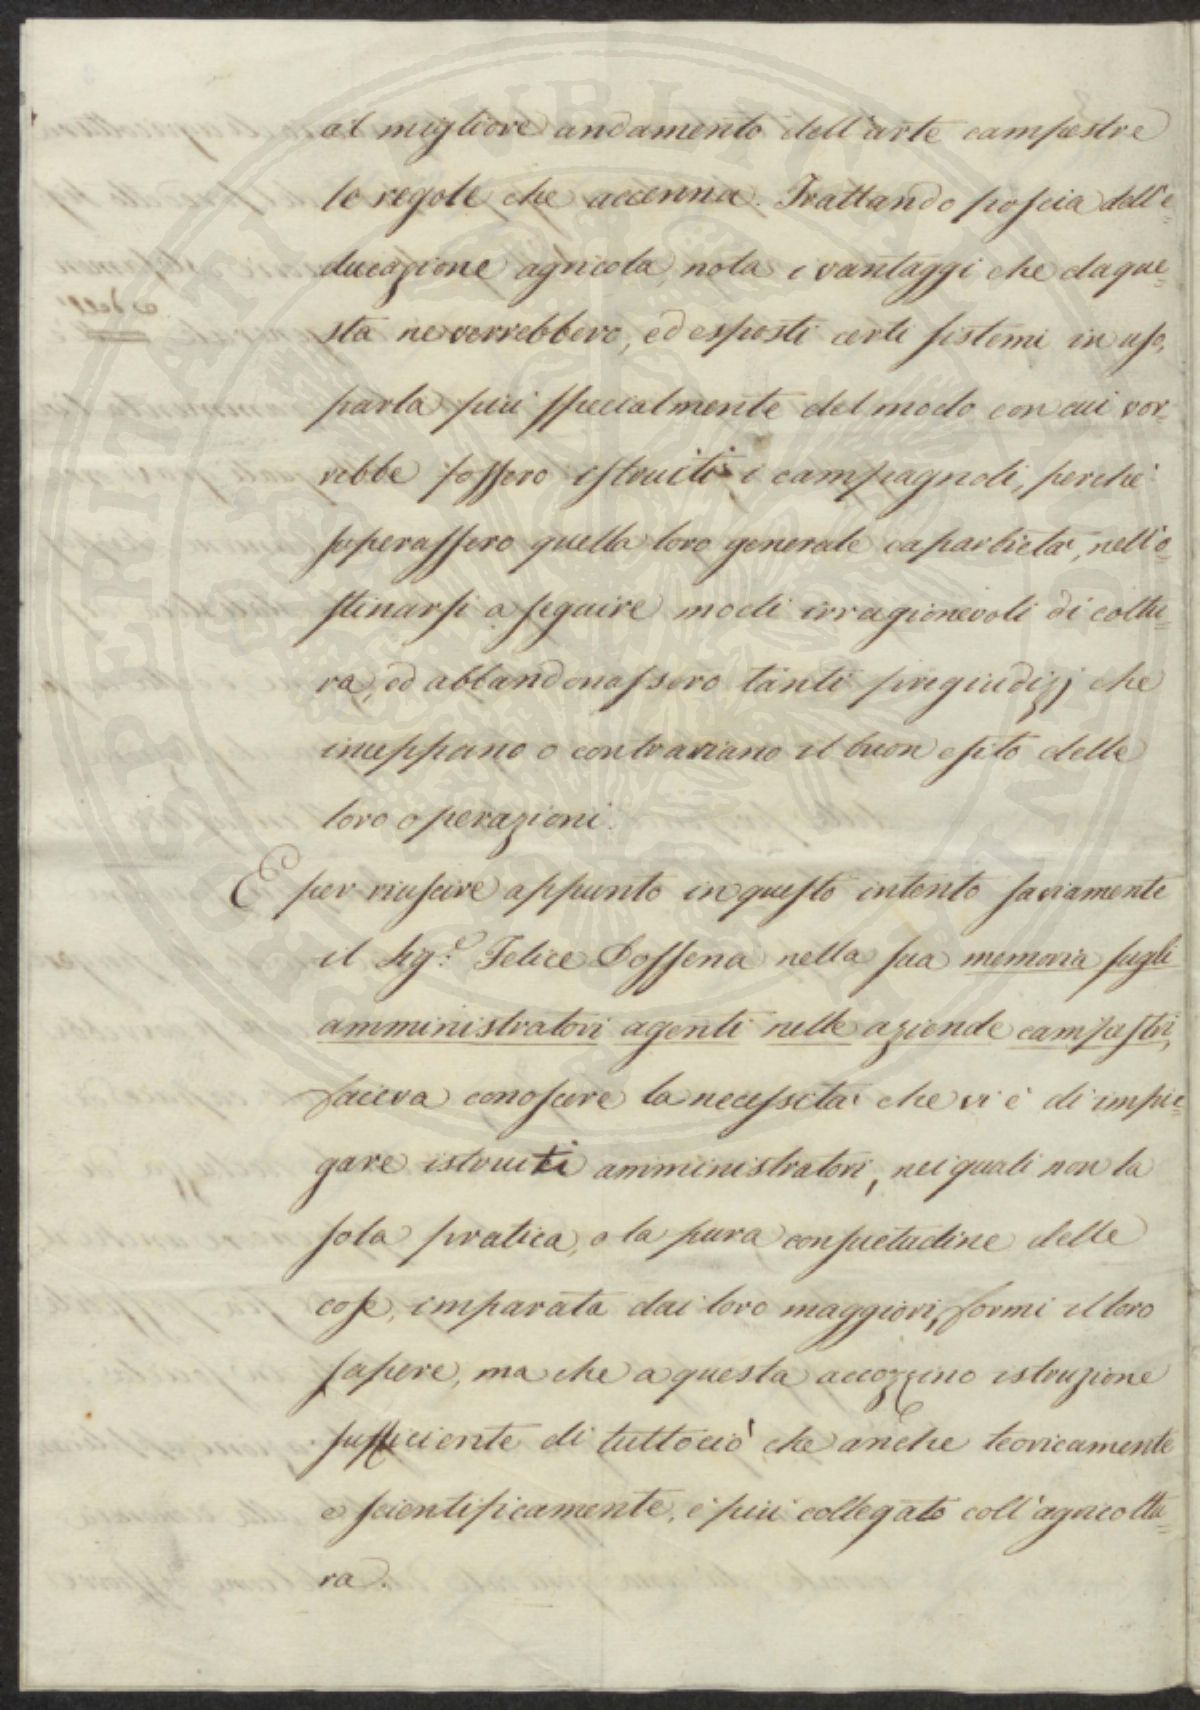 al migliore andamento dell'arte campestre
le regole che accenna. Trattando poscia dell'e=
ducazione agricola, nota i vantaggi che da que=
sta ne verrebbero, ed esposti certi sistemi in uso,
parla più specialmente del modo con cui vor=
rebbe fossero istruiti i campagnoli, perchè
superassero quella loro generale caparbietà, nell'o=
stinarsi a seguire modi irragionevoli di coltu=
ra, ed abbandonassero tanti pregiudizj che
inceppano o contrariano il buon esito delle
loro operazioni.
E per riuscire appunto in questo intento saviamente
il Sig.e Felice Dossena nella sua memoria sugli
amministratori agenti nelle aziende campestri,
faceva conoscere la necessità che vi è di impie=
gare istruiti amministratori, nei quali non la
sola pratica, o la pura consuetudine delle
cose, imparata dai loro maggiori, formi il loro
sapere, ma che a questa accozzino istruzione
sufficiente di tuttociò che anche teoricamente
e scientificamente, è più collegato coll'agricoltu=
ra.